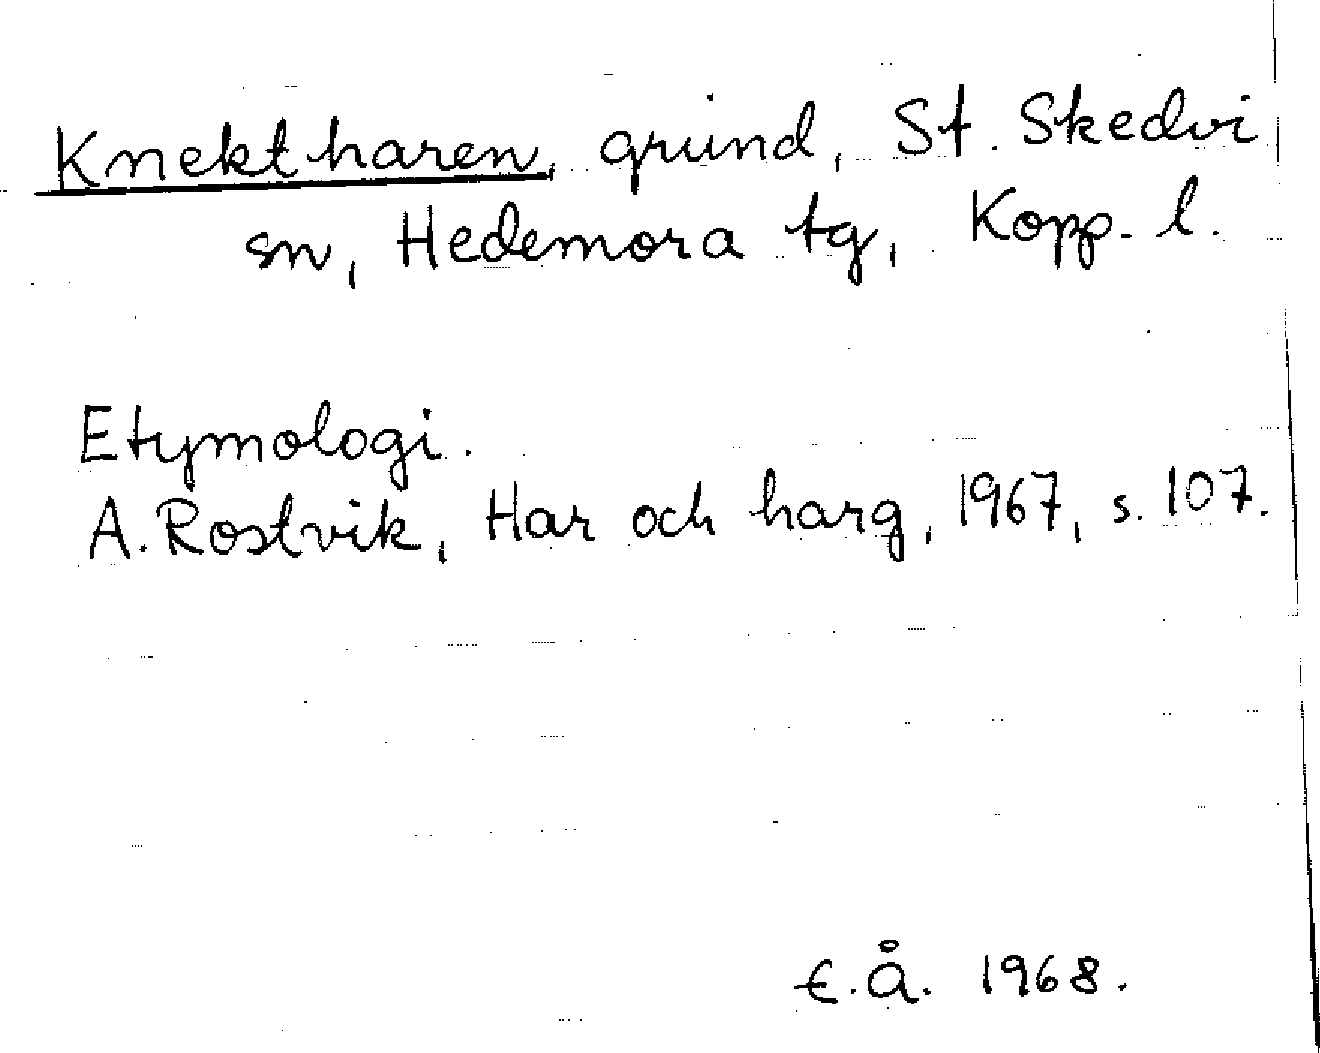 Knektharen, grund, St. Skedvi
sn, Hedemora tg, Kopp. l.
Etymologi.
A. Rostvik, Har och harg, 1967, s. 107.
E.Å. 1968.